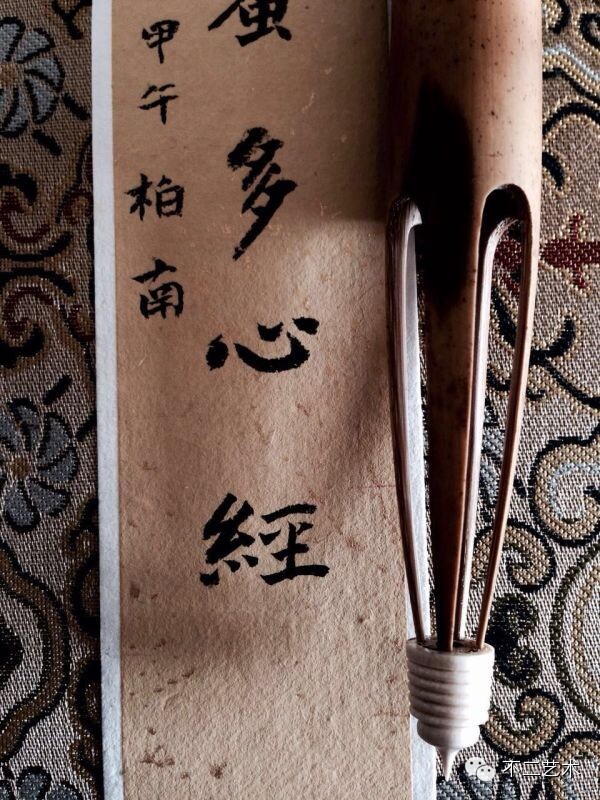 蜜多心經
甲午柏南
不二艺术